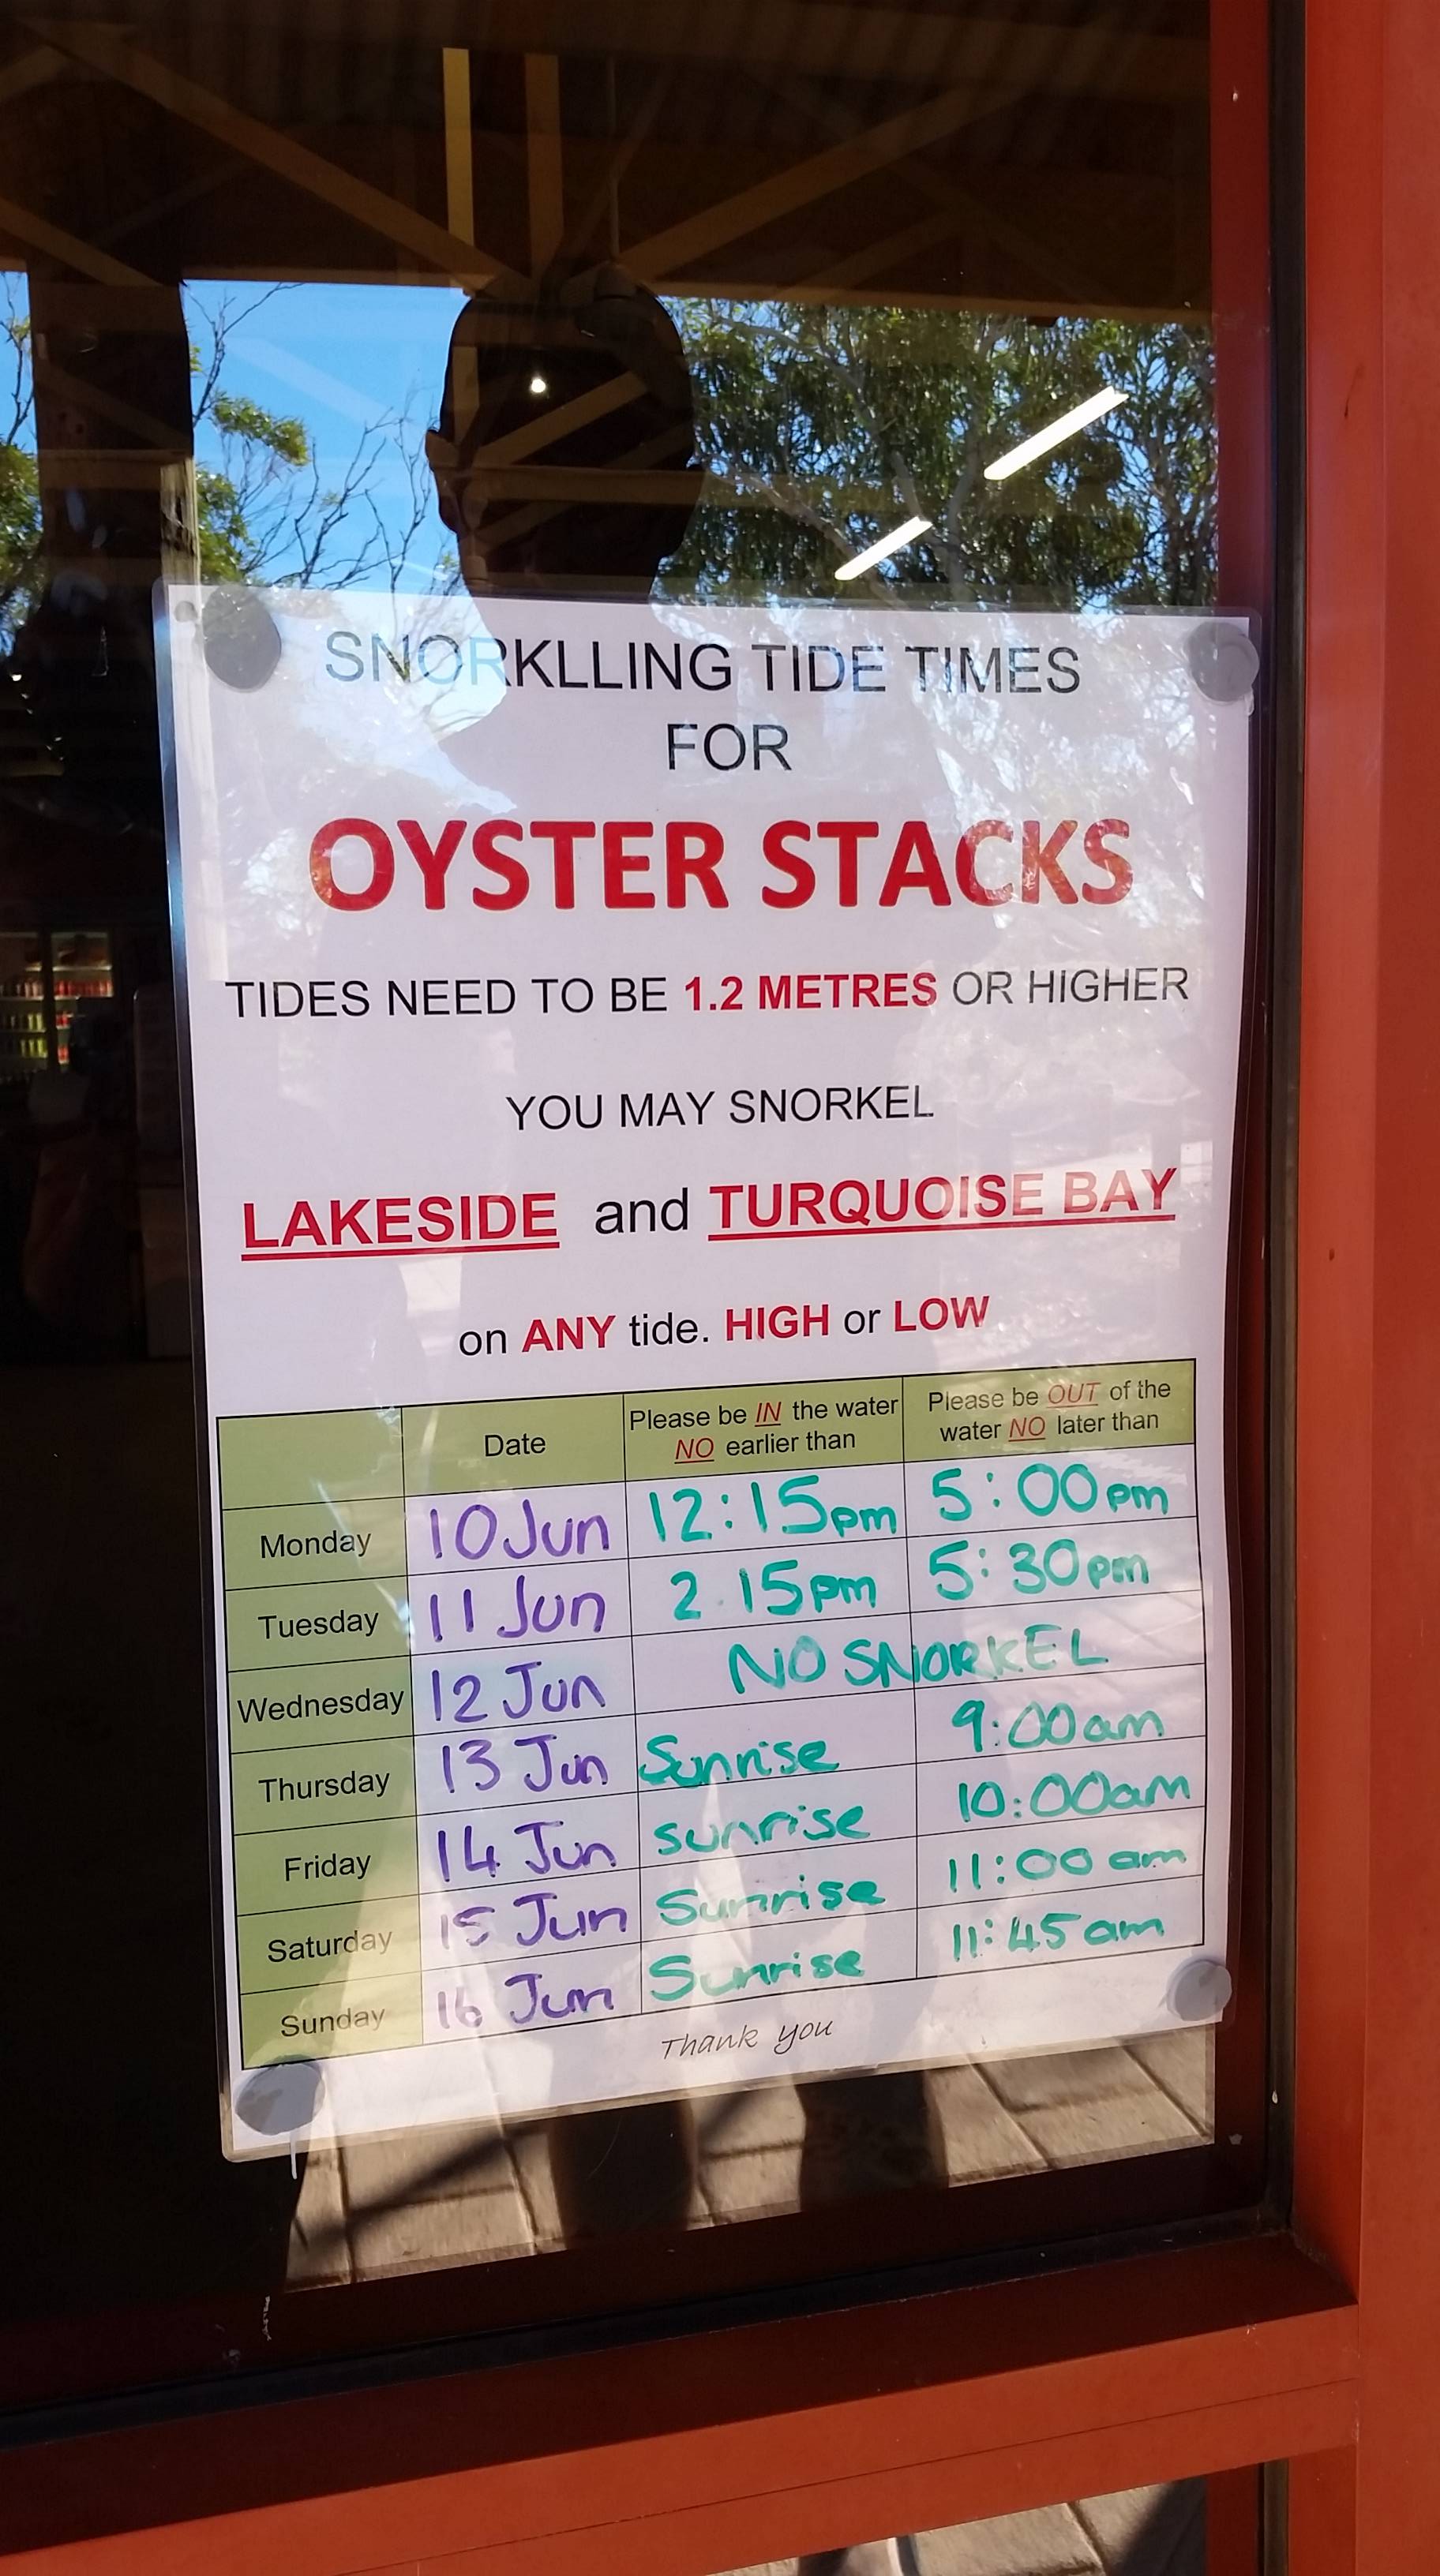 SNORKLLING TIDE TIMES
FOR
OYSTER STACKS
TIDES NEED TO BE 1.2 METRES OR HIGHER
YOU MAY SNORKEL
LAKESIDE and TURQUOISE BAY
on ANY tide. HIGH or LOW
Date Please be IN the water NO earlier than Please be OUT of the water NO later than
Monday 10 Jun 12:15pm 5:00pm
Tuesday 11 Jun 2.15pm 5:30pm
Wednesday 12 Jun NO SNORKEL
Thursday 13 Jun Sunrise 9:00am
Friday 14 Jun sunrise 10:00am
Saturday 15 Jun Sunrise 11:00 am
Sunday 16 Jun Sunrise 11:45 am
Thank you